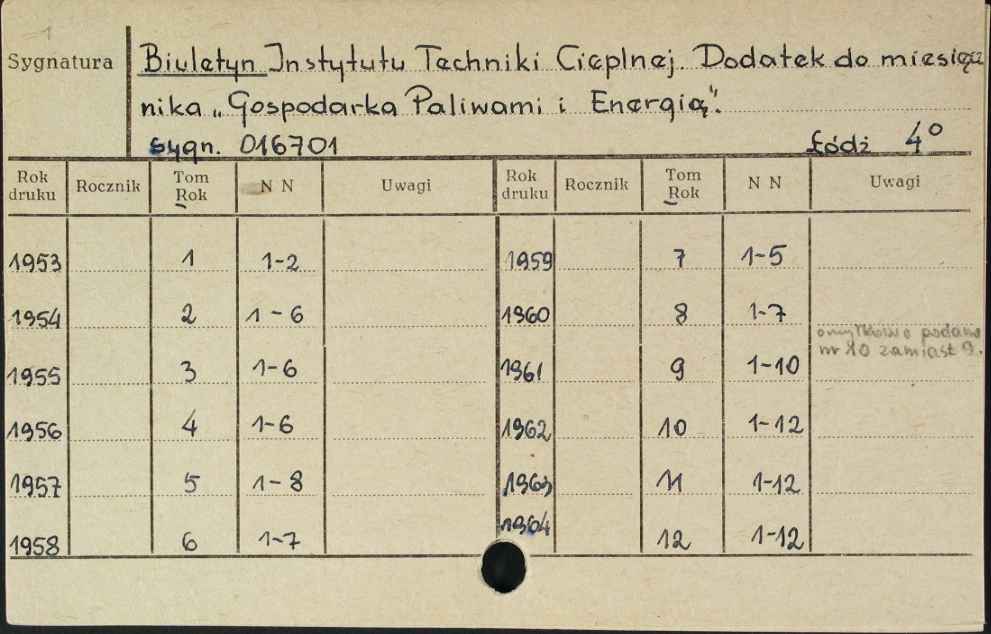 1
Sygnatura
Biuletyn Instytutu Techniki Cieplnej. Dodatek do miesięcz
nika „Gospodarka Paliwami i Energią".
sygn. 016701 Łódź 4°
Rok druku Rocznik Tom Rok N N Uwagi Rok druku Rocznik Tom Rok N N Uwagi
1953 1 1-2 1959 7 1-5
1954 2 1-6 1960 8 1-7
omyłkowo podano
nr 10 zamiast 9.
1955 3 1-6 1961 9 1-10
1956 4 1-6 1962 10 1-12
1957 5 1-8 1963 11 1-12
1958 6 1-7 1964 12 1-12